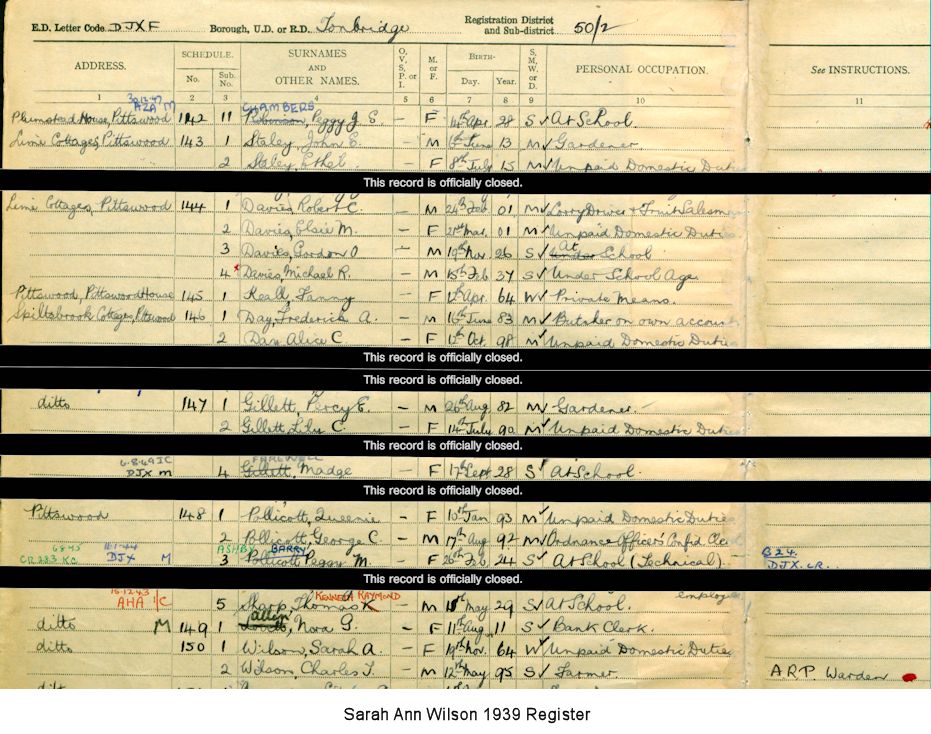 E.D. Letter Code DJXF Borough, U.D. or R.D. Tonbridge Registration District and Sub-district 50/2
ADDRESS. SCHEDULE. No. Sub. No. SURNAMES AND OTHER NAMES. O, V, S, P, or I. M. or F. BIRTH- Day. Year. S, M, W, or D. PERSONAL OCCUPATION. See INSTRUCTIONS.
1 2 3 4 5 6 7 8 9 10 11
AZA M CHAMBERS
Plumstead House, Pittswood 142 11 Robinson, Peggy J E — F 14th Apr 28 S At School.
Lime Cottages, Pittswood 143 1 Staley, John E. — M June 13 M Gardener
2 Staley, Ethel — F 8th July 15 M Unpaid Domestic Duties
This record is officially closed.
Lime Cottages, Pittswood 144 1 Davies, Robert C. — M 24th Feb 01 M Lorry Driver & Fruit Salesman
2 Davies, Elsie M. — F Mar. 01 M Unpaid Domestic Duties
3 Davies, Gordon O — M 19th Nov. 26 S At School
4 Davies, Michael R. — M 15th Feb 37 S Under School Age
Pittswood, Pittswood House 145 1 Keall, Fanny — F Apr. 64 W Private Means.
Spiltsbrook Cottage, Pittswood 146 1 Day, Frederick A. — M 16th June 83 M Butcher on own account
2 Day, Alice C. — F Oct. 98 M Unpaid Domestic Duties
This record is officially closed.
This record is officially closed.
ditto 147 1 Gillett, Percy E. — M 26th Aug 82 M Gardener
2 Gillett, Lily C. — F 14th July 90 M Unpaid Domestic Duties
This record is officially closed.
6.8.49 IC FAREWELL
DJX M 4 Gillett, Madge — F 17th Sept 28 S At School.
This record is officially closed.
Pittswood 148 1 Pollicott, Queenie — F 10th Jan 93 M Unpaid Domestic Duties
2 Pollicott, George C. — M 17th Aug 92 M Ordnance Officer's Confid. Clerk
ASHBY BARRY B24.
CR 283 K.C. DJX M 3 Pollicott, Peggy M. — F 26th Feb 24 S At School (Technical). DJX. CR.
This record is officially closed.
15.12.43 KENNETH RAYMOND
AHA IC 5 Sharp, Thomas K — M May 29 S At School.
ditto M 149 1 Nora G. — F 11th Aug 11 S Bank Clerk.
ditto 150 1 Wilson, Sarah A. — F 19th Nov. 64 W Unpaid Domestic Duties
2 Wilson, Charles T. — M 12th May 95 S Farmer. ARP. Warden
Sarah Ann Wilson 1939 Register